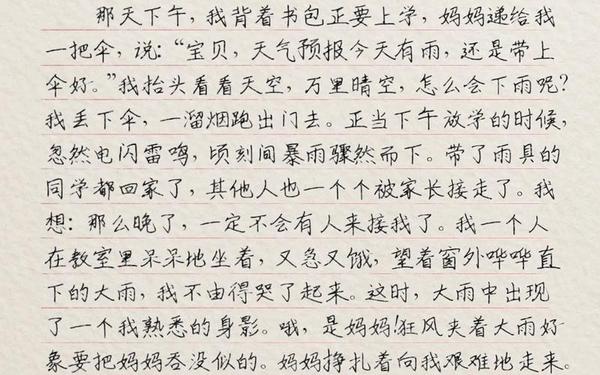 那天下午，我背着书包正要上学，妈妈递给我
一把伞，说：“宝贝，天气预报今天有雨，还是带上
伞好。”我抬头看看天空，万里晴空，怎么会下雨呢？
我丢下伞，一溜烟跑出门去。正当下午放学的时候，
忽然电闪雷鸣，顷刻间暴雨骤然而下。带了雨具的
同学都回家了，其他人也一个个被家长接走了。我
想：那么晚了，一定不会有人来接我了。我一个人
在教室里呆呆地坐着，又急又饿，望着窗外哗哗直
下的大雨，我不由得哭了起来。这时，大雨中出现
了一个我熟悉的身影。哦，是妈妈！狂风夹着大雨好
象要把妈妈吞没似的。妈妈挣扎着向我艰难地走来。